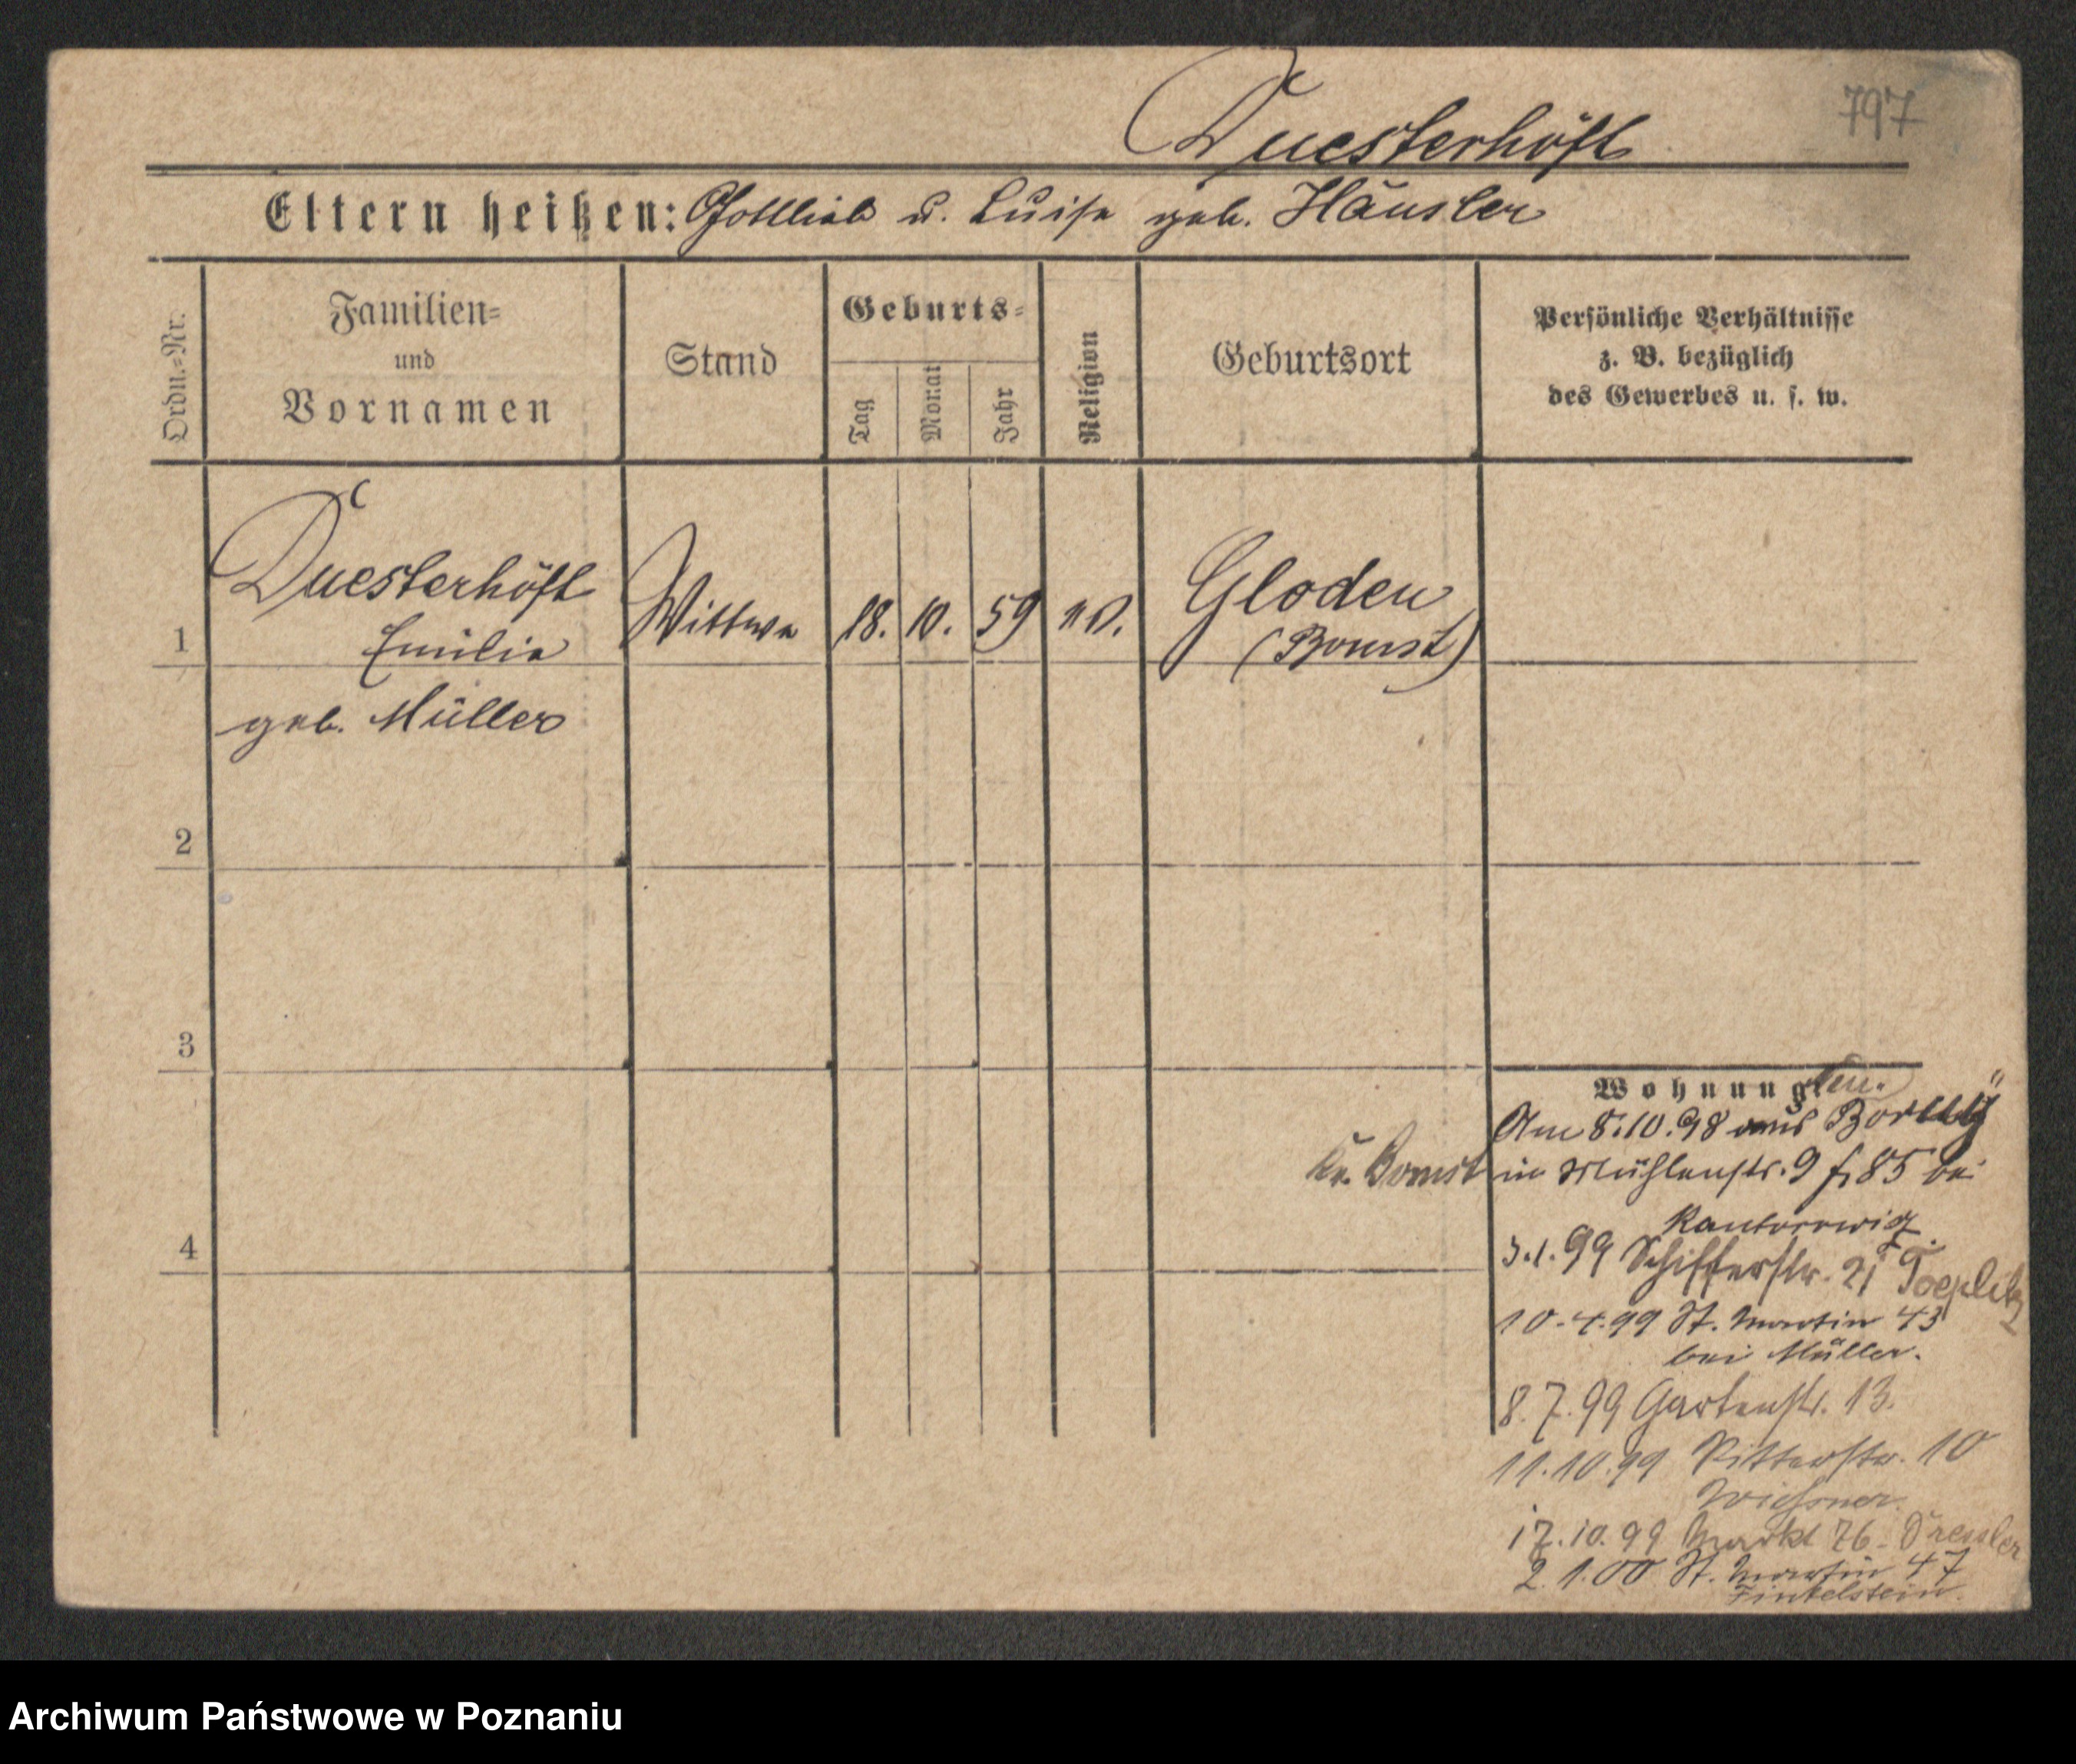 797
Duesterhöft
Eltern heißen: Gottlieb u. Luise geb. Häusler
Ordn.=Nr.
Familien=
und
Vornamen
Stand
Geburts=
Tag
Monat
Jahr
Religion
Geburtsort
Persönliche Verhältnisse
z. B. bezüglich
des Gewerbes u. s. w.
1
Duesterhöft
Emilie
geb. Müller
Wittwe
18.
10.
59
Gloden
(Bomst)
2
3
4
Wohnungen.
Am 8.10.98 aus
Kr. Bomst in Mühlenstr. 9 85 bei
Kantorowicz
3.1.99 Schifferstr. 21 Toeplitz
10.4.99 St. Martin 43
bei Müller.
8.7.99 Gartenstr. 13.
11.10.99 Ritterstr. 10
17.10.99 Markt 76 - Dressler
2.1.00 St. Martin 47
Finkelstein.
Archiwum Państwowe w Poznaniu